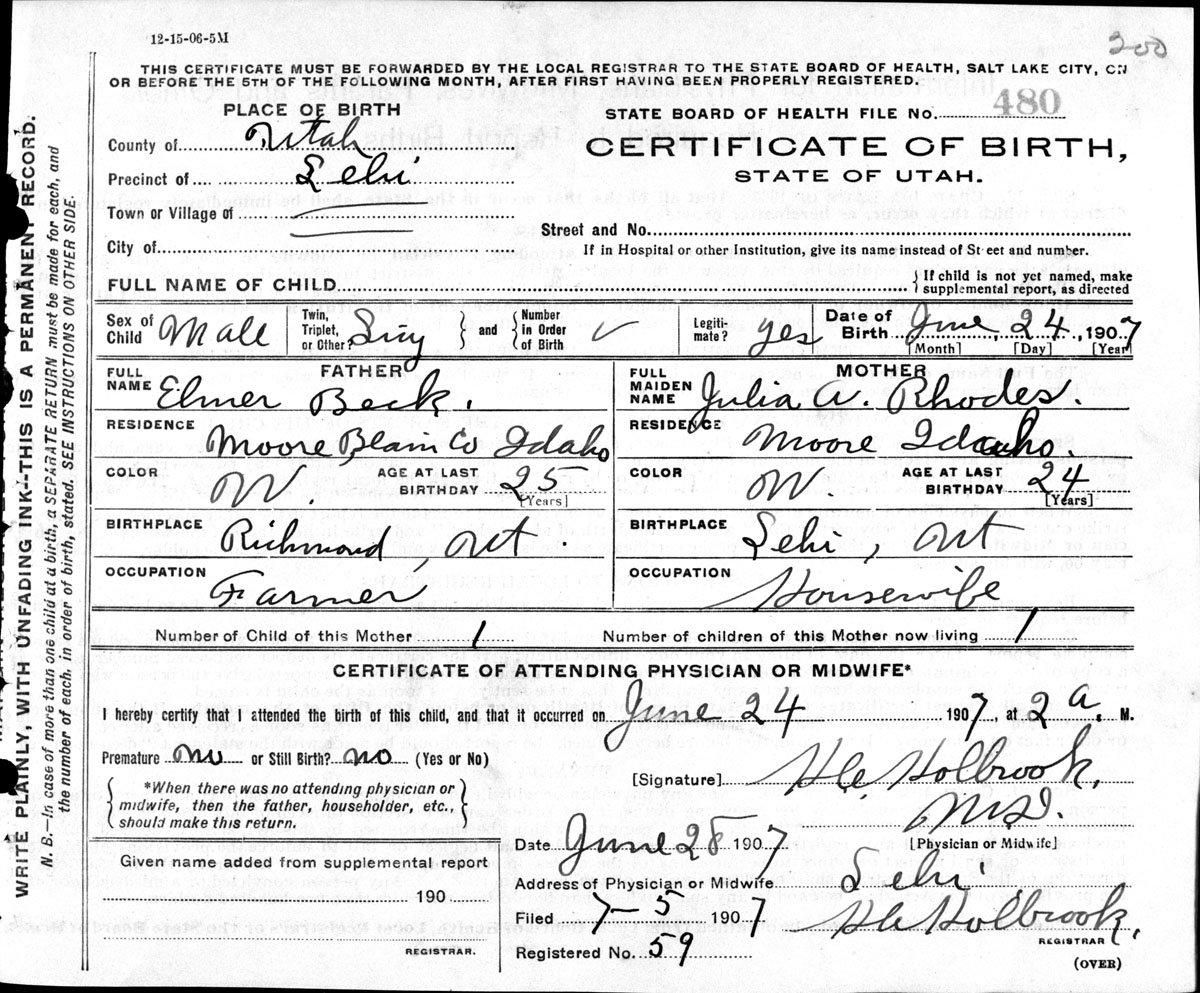 12-15-06-5M
200
THIS CERTIFICATE MUST BE FORWARDED BY THE LOCAL REGISTRAR TO THE STATE BOARD OF HEALTH, SALT LAKE CITY, ON
OR BEFORE THE 5TH OF THE FOLLOWING MONTH, AFTER FIRST HAVING BEEN PROPERLY REGISTERED.
PLACE OF BIRTH
STATE BOARD OF HEALTH FILE No. 480
County of Utah
CERTIFICATE OF BIRTH,
Precinct of Lehi
STATE OF UTAH.
Town or Village of
Street and No.
City of
If in Hospital or other Institution, give its name instead of Street and number.
FULL NAME OF CHILD
{ If child is not yet named, make
supplemental report, as directed
Sex of Child Male
Twin, Triplet, or Other? Sing } and { Number in Order of Birth ✓
Legitimate? yes
Date of Birth June 24, 1907
[Month] [Day] [Year]
FATHER
FULL NAME Elmer Beck.
MOTHER
FULL MAIDEN NAME Julia A. Rhodes.
RESIDENCE Moore Blain Co Idaho
RESIDENCE Moore Idaho.
COLOR W. AGE AT LAST BIRTHDAY 25 [Years]
COLOR W. AGE AT LAST BIRTHDAY 24 [Years]
BIRTHPLACE Richmond, Ut.
BIRTHPLACE Lehi, Ut
OCCUPATION Farmer
OCCUPATION Housewife
Number of Child of this Mother 1
Number of children of this Mother now living 1
CERTIFICATE OF ATTENDING PHYSICIAN OR MIDWIFE*
I hereby certify that I attended the birth of this child, and that it occurred on June 24 1907, at 2 a. M.
Premature no or Still Birth? no (Yes or No)
[Signature] Holbrook,
M.D.
[Physician or Midwife]
{ *When there was no attending physician or
midwife, then the father, householder, etc.,
should make this return. }
Date June 28 1907
Given name added from supplemental report
190
REGISTRAR.
Address of Physician or Midwife Lehi
Filed 7-5 1907
Holbrook,
REGISTRAR
Registered No. 59
(OVER)
WRITE PLAINLY, WITH UNFADING INK--THIS IS A PERMANENT RECORD.
N. B.—In case of more than one child at a birth, a SEPARATE RETURN must be made for each, and
the number of each, in order of birth, stated. SEE INSTRUCTIONS ON OTHER SIDE.